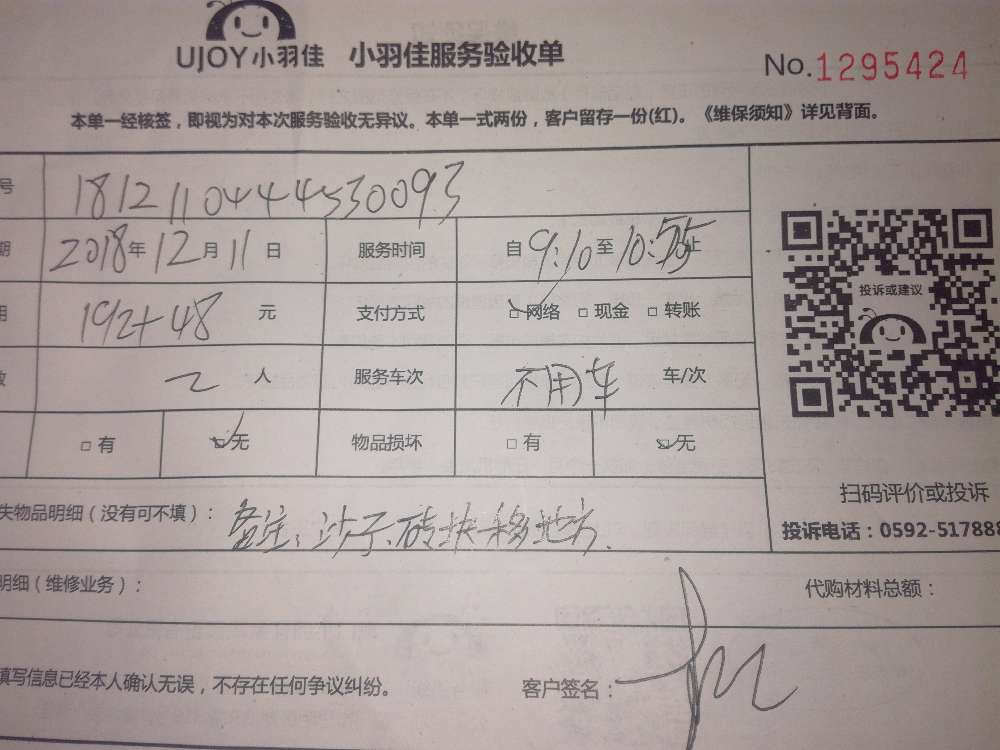 UJOY小羽佳 小羽佳服务验收单 No.1295424
本单一经核签，即视为对本次服务验收无异议。本单一式两份，客户留存一份(红)。《维保须知》详见背面。
号 1812110444530093
期 2018年12月11日 服务时间 自9:10至10: 止
用 192+48 元 支付方式 □网络 □现金 □转账
数 2 人 服务车次 不用车 车/次
□有 □无 物品损坏 □有 □无
投诉或建议
扫码评价或投诉
投诉电话：0592-517888
失物品明细（没有可不填）： 备注：沙子、砖块移地方.
明细（维修业务）： 代购材料总额：
填写信息已经本人确认无误，不存在任何争议纠纷。 客户签名：